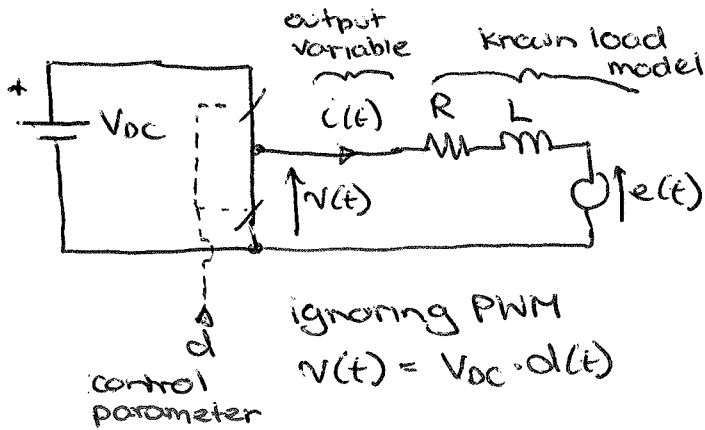 output
variable
known load
model
i(t)
R
L
+
VDC
v(t)
e(t)
d
control
parameter
ignoring PWM
v(t) = VDC · d(t)